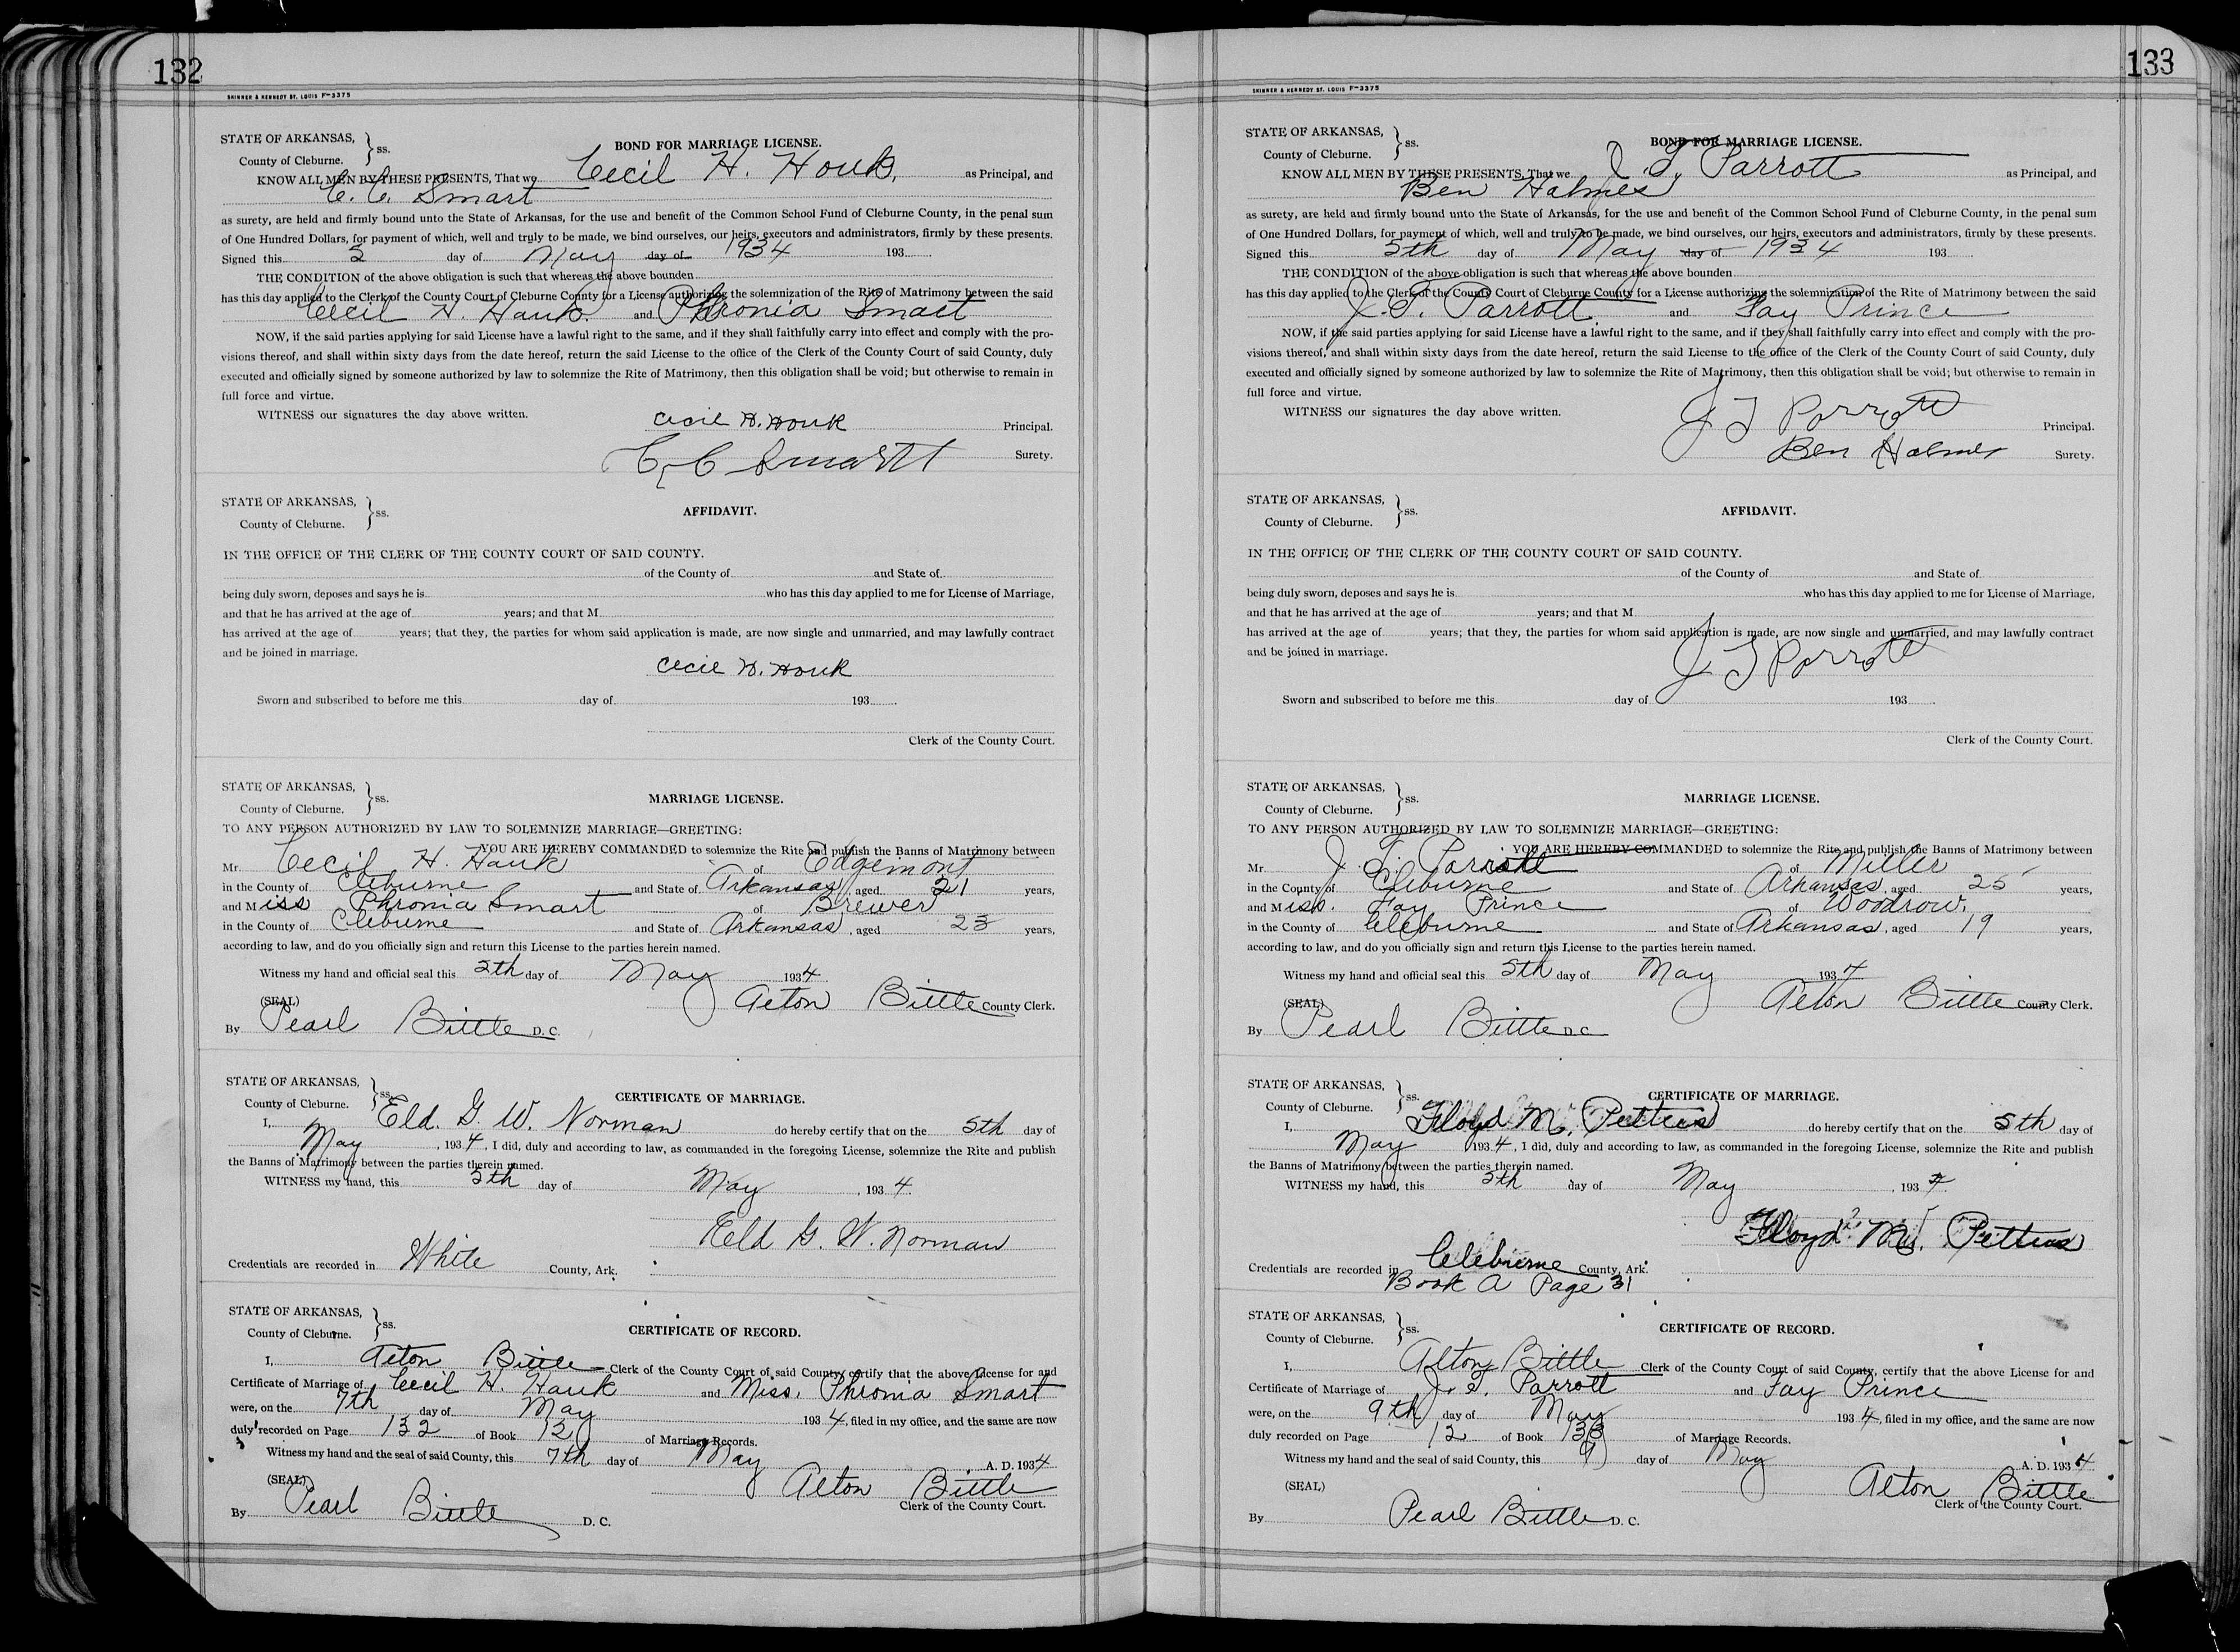 132
SKINNER & KENNEDY ST. LOUIS F-3375
STATE OF ARKANSAS,
County of Cleburne. ss.
BOND FOR MARRIAGE LICENSE.
KNOW ALL MEN BY THESE PRESENTS, That we Cecil H. Houk, as Principal, and
C. C. Smart
as surety, are held and firmly bound unto the State of Arkansas, for the use and benefit of the Common School Fund of Cleburne County, in the penal sum
of One Hundred Dollars, for payment of which, well and truly to be made, we bind ourselves, our heirs, executors and administrators, firmly by these presents.
Signed this 5 day of May day of 1934 193
THE CONDITION of the above obligation is such that whereas the above bounden
has this day applied to the Clerk of the County Court of Cleburne County for a License authorizing the solemnization of the Rite of Matrimony between the said
Cecil H. Hauk and Phronia Smart
NOW, if the said parties applying for said License have a lawful right to the same, and if they shall faithfully carry into effect and comply with the pro-
visions thereof, and shall within sixty days from the date hereof, return the said License to the office of the Clerk of the County Court of said County, duly
executed and officially signed by someone authorized by law to solemnize the Rite of Matrimony, then this obligation shall be void; but otherwise to remain in
full force and virtue.
WITNESS our signatures the day above written.
Cecil H. Houk Principal.
C C Smartt Surety.
STATE OF ARKANSAS,
County of Cleburne. ss.
AFFIDAVIT.
IN THE OFFICE OF THE CLERK OF THE COUNTY COURT OF SAID COUNTY.
of the County of and State of
being duly sworn, deposes and says he is who has this day applied to me for License of Marriage,
and that he has arrived at the age of years; and that M
has arrived at the age of years; that they, the parties for whom said application is made, are now single and unmarried, and may lawfully contract
and be joined in marriage.
Cecil H. Houk
Sworn and subscribed to before me this day of 193
Clerk of the County Court.
STATE OF ARKANSAS,
County of Cleburne. ss.
MARRIAGE LICENSE.
TO ANY PERSON AUTHORIZED BY LAW TO SOLEMNIZE MARRIAGE—GREETING:
YOU ARE HEREBY COMMANDED to solemnize the Rite and publish the Banns of Matrimony between
Mr. Cecil H. Hauk of Edgemont
in the County of Cleburne and State of Arkansas, aged 21 years,
and Miss Phronia Smart of Brewer
in the County of Cleburne and State of Arkansas, aged 23 years,
according to law, and do you officially sign and return this License to the parties herein named.
Witness my hand and official seal this 5th day of May 1934
(SEAL) Alton Bittle County Clerk.
By Pearl Bittle D. C.
STATE OF ARKANSAS,
County of Cleburne. ss.
CERTIFICATE OF MARRIAGE.
I, Eld. G. W. Norman do hereby certify that on the 5th day of
May, 1934, I did, duly and according to law, as commanded in the foregoing License, solemnize the Rite and publish
the Banns of Matrimony between the parties therein named.
WITNESS my hand, this 5th day of May, 1934.
Eld G. W. Norman
Credentials are recorded in White County, Ark.
STATE OF ARKANSAS,
County of Cleburne. ss.
CERTIFICATE OF RECORD.
I, Alton Bittle Clerk of the County Court of said County, certify that the above License for and
Certificate of Marriage of Cecil H. Hauk and Miss. Phronia Smart
were, on the 7th day of May 1934, filed in my office, and the same are now
duly recorded on Page 132 of Book 12 of Marriage Records.
Witness my hand and the seal of said County, this 7th day of May A. D. 1934
(SEAL) Alton Bittle
Clerk of the County Court.
By Pearl Bittle D. C.
133
SKINNER & KENNEDY ST. LOUIS F-3375
STATE OF ARKANSAS,
County of Cleburne. ss.
BOND FOR MARRIAGE LICENSE.
KNOW ALL MEN BY THESE PRESENTS, That we J. T. Parrott as Principal, and
Ben Halmes
as surety, are held and firmly bound unto the State of Arkansas, for the use and benefit of the Common School Fund of Cleburne County, in the penal sum
of One Hundred Dollars, for payment of which, well and truly to be made, we bind ourselves, our heirs, executors and administrators, firmly by these presents.
Signed this 5th day of May day of 1934 193
THE CONDITION of the above obligation is such that whereas the above bounden
has this day applied to the Clerk of the County Court of Cleburne County for a License authorizing the solemnization of the Rite of Matrimony between the said
J. T. Parrott and Fay Prince
NOW, if the said parties applying for said License have a lawful right to the same, and if they shall faithfully carry into effect and comply with the pro-
visions thereof, and shall within sixty days from the date hereof, return the said License to the office of the Clerk of the County Court of said County, duly
executed and officially signed by someone authorized by law to solemnize the Rite of Matrimony, then this obligation shall be void; but otherwise to remain in
full force and virtue.
WITNESS our signatures the day above written.
J T Parrott Principal.
Ben Holmes Surety.
STATE OF ARKANSAS,
County of Cleburne. ss.
AFFIDAVIT.
IN THE OFFICE OF THE CLERK OF THE COUNTY COURT OF SAID COUNTY.
of the County of and State of
being duly sworn, deposes and says he is who has this day applied to me for License of Marriage,
and that he has arrived at the age of years; and that M
has arrived at the age of years; that they, the parties for whom said application is made, are now single and unmarried, and may lawfully contract
and be joined in marriage.
J T Parrott
Sworn and subscribed to before me this day of 193
Clerk of the County Court.
STATE OF ARKANSAS,
County of Cleburne. ss.
MARRIAGE LICENSE.
TO ANY PERSON AUTHORIZED BY LAW TO SOLEMNIZE MARRIAGE—GREETING:
YOU ARE HEREBY COMMANDED to solemnize the Rite and publish the Banns of Matrimony between
Mr J. T. Parrott of Miller
in the County of Cleburne and State of Arkansas, aged 25 years,
and Miss. Fay Prince of Woodrow.
in the County of Cleburne and State of Arkansas, aged 19 years,
according to law, and do you officially sign and return this License to the parties herein named.
Witness my hand and official seal this 5th day of May 1934
(SEAL) Alton Bittle County Clerk.
By Pearl Bittle D. C
STATE OF ARKANSAS,
County of Cleburne. ss.
CERTIFICATE OF MARRIAGE.
I, Floyd M. Pettus do hereby certify that on the 5th day of
May 1934, I did, duly and according to law, as commanded in the foregoing License, solemnize the Rite and publish
the Banns of Matrimony between the parties therein named.
WITNESS my hand, this 5th day of May, 1934.
Floyd M. Pettus
Credentials are recorded in Cleburne County, Ark.
Book A Page 31
STATE OF ARKANSAS,
County of Cleburne. ss.
CERTIFICATE OF RECORD.
I, Alton Bittle Clerk of the County Court of said County, certify that the above License for and
Certificate of Marriage of J. T. Parrott and Fay Prince
were, on the 9th day of May 1934, filed in my office, and the same are now
duly recorded on Page 12 of Book 133 of Marriage Records.
Witness my hand and the seal of said County, this 9 day of May A. D. 1934
(SEAL) Alton Bittle
Clerk of the County Court.
By Pearl Bittle D. C.